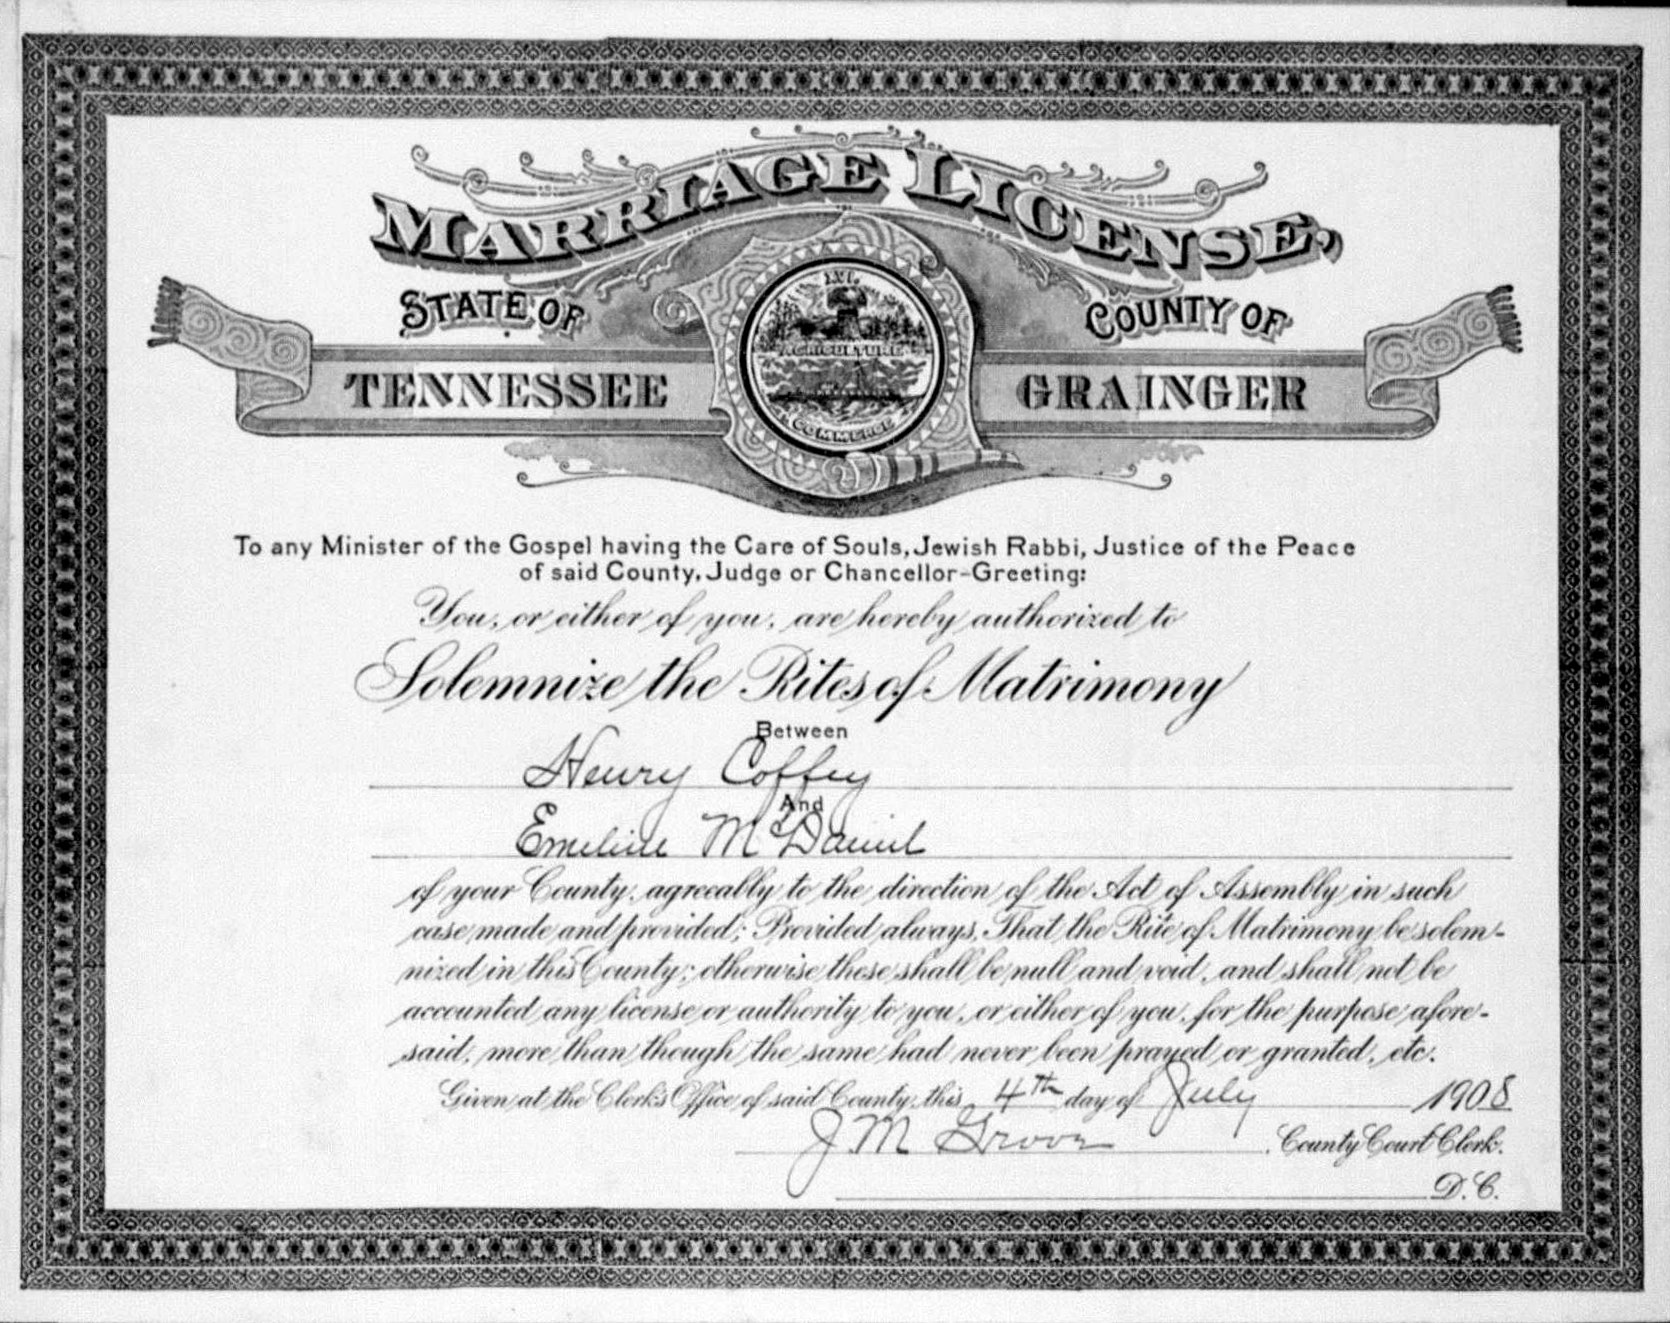 MARRIAGE LICENSE,
STATE OF
COUNTY OF
TENNESSEE
GRAINGER
XVI.
AGRICULTURE
COMMERCE
To any Minister of the Gospel having the Care of Souls, Jewish Rabbi, Justice of the Peace
of said County, Judge or Chancellor-Greeting:
You, or either of you, are hereby authorized to
Solemnize the Rites of Matrimony
Between
Henry Coffey
And
Emeline McDaniel
of your County, agreeably to the direction of the Act of Assembly in such
case made and provided; Provided always, That the Rite of Matrimony be solem-
nized in this County; otherwise these shall be null and void, and shall not be
accounted any license or authority to you, or either of you, for the purpose afore-
said, more than though the same had never been prayed or granted, etc.
Given at the Clerk's Office of said County, this 4th day of July 1908
J. M Grove County Court Clerk.
D. C.